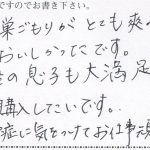 ですのでお書き下さい。
巣ごもりが とても爽
おいしかったです。
の息子も大満足
購入したいです。
症に気をつけてお仕事